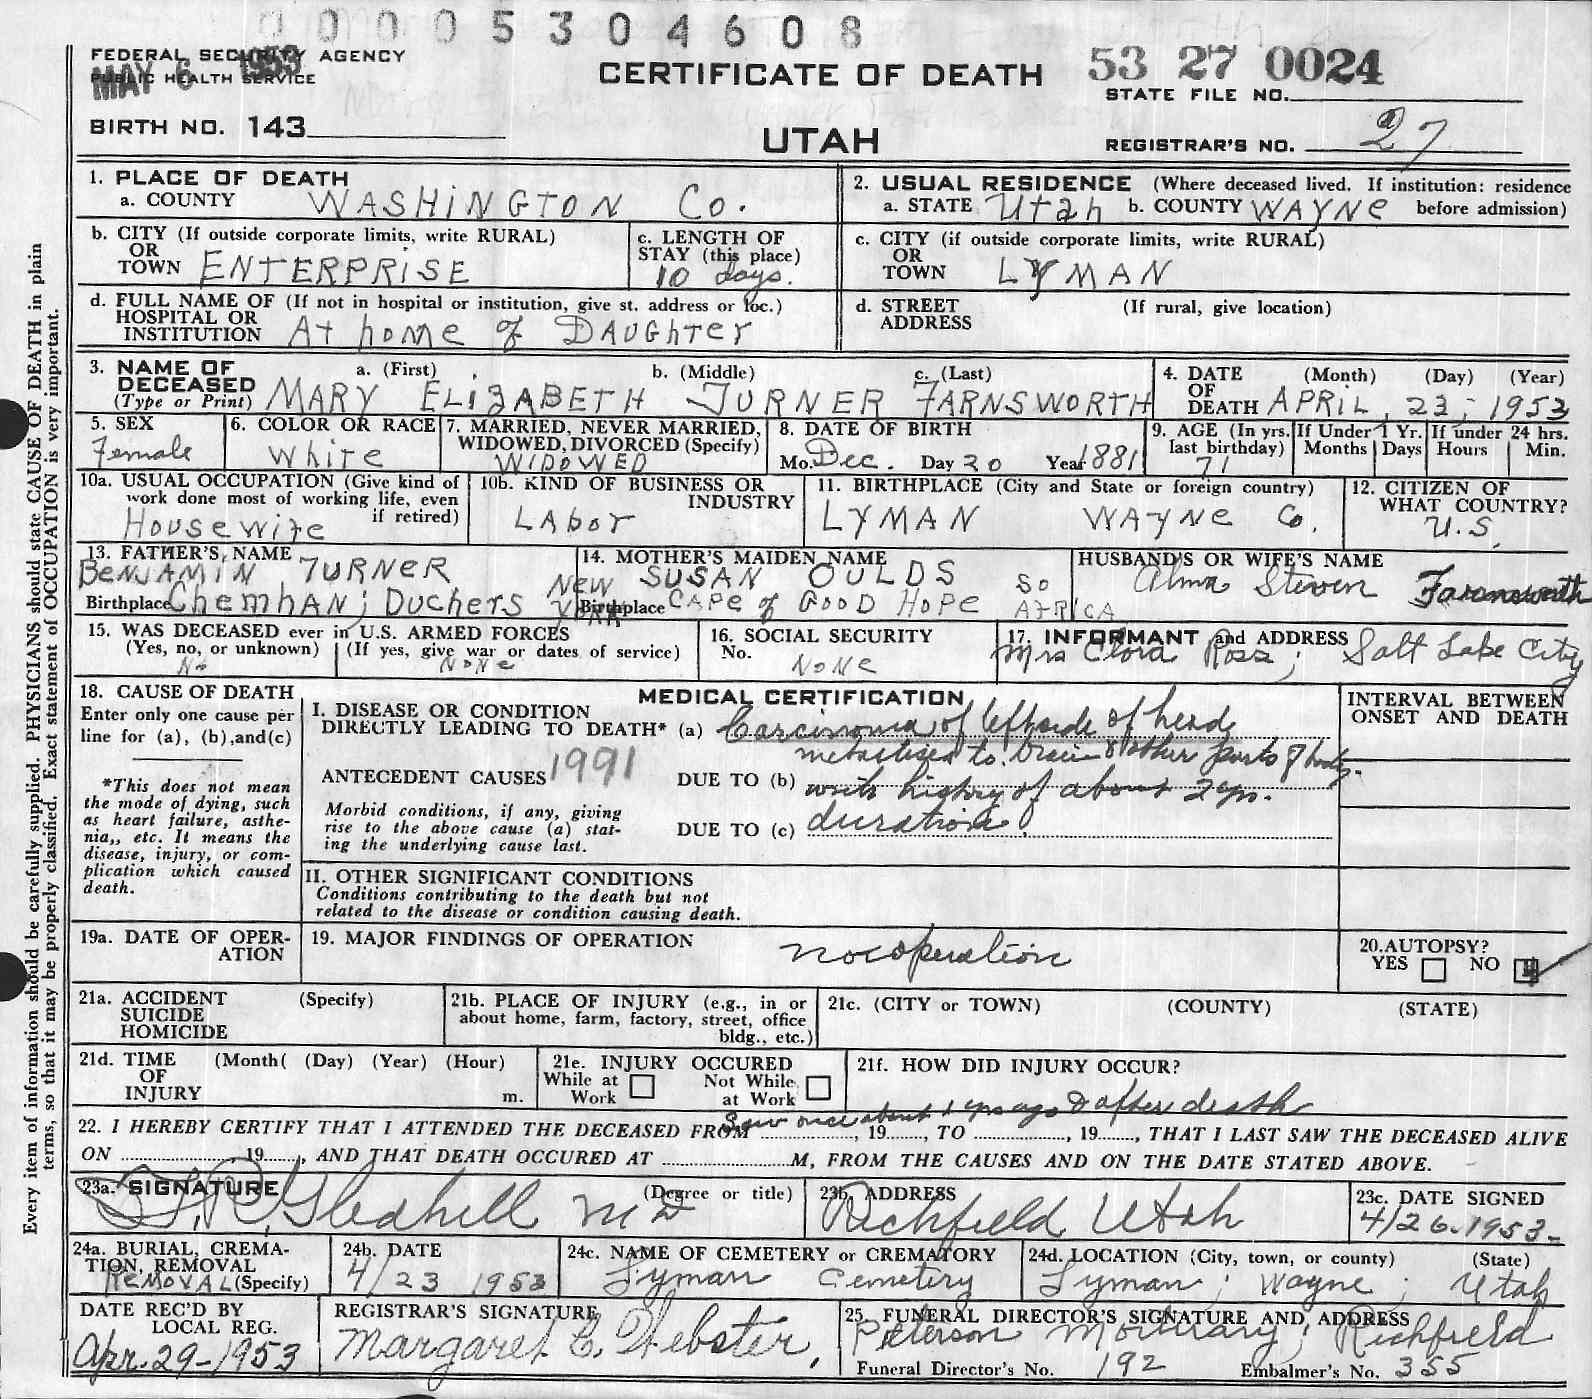 0 0 0 5 3 0 4 6 0 8
FEDERAL SECURITY AGENCY
PUBLIC HEALTH SERVICE
MAY 6 1953
CERTIFICATE OF DEATH
53 27 0024
STATE FILE NO.
BIRTH NO. 143
UTAH
REGISTRAR'S NO. 27
1. PLACE OF DEATH
a. COUNTY WASHINGTON Co.
2. USUAL RESIDENCE (Where deceased lived. If institution: residence before admission)
a. STATE Utah b. COUNTY WAYNE
b. CITY (If outside corporate limits, write RURAL)
OR
TOWN ENTERPRISE
c. LENGTH OF
STAY (this place)
10 days.
c. CITY (if outside corporate limits, write RURAL)
OR
TOWN LYMAN
d. FULL NAME OF (If not in hospital or institution, give st. address or loc.)
HOSPITAL OR
INSTITUTION At home of Daughter
d. STREET (If rural, give location)
ADDRESS
3. NAME OF a. (First) b. (Middle) c. (Last)
DECEASED
(Type or Print) MARY ELIZABETH TURNER FARNSWORTH
4. DATE (Month) (Day) (Year)
OF
DEATH APRIL, 23, 1953
5. SEX
Female
6. COLOR OR RACE
White
7. MARRIED, NEVER MARRIED,
WIDOWED, DIVORCED (Specify)
WIDOWED
8. DATE OF BIRTH
Mo. Dec. Day 20 Year 1881
9. AGE (In yrs. last birthday)
71
If Under 1 Yr.
Months Days
If under 24 hrs.
Hours Min.
10a. USUAL OCCUPATION (Give kind of
work done most of working life, even
if retired)
Housewife
10b. KIND OF BUSINESS OR
INDUSTRY
LAbor
11. BIRTHPLACE (City and State or foreign country)
LYMAN WAYNE Co.
12. CITIZEN OF
WHAT COUNTRY?
U.S.
13. FATHER'S NAME
BENJAMIN TURNER
Birthplace Chemhan; Duchers New York
14. MOTHER'S MAIDEN NAME
SUSAN OULDS
Birthplace CAPE of GOOD HOPE So AFRICA
HUSBAND'S OR WIFE'S NAME
Alma Steven Farnsworth
15. WAS DECEASED ever in U.S. ARMED FORCES
(Yes, no, or unknown) (If yes, give war or dates of service)
No None
16. SOCIAL SECURITY
No. NONE
17. INFORMANT and ADDRESS
Mrs Clora Ross; Salt Lake City
18. CAUSE OF DEATH
Enter only one cause per
line for (a), (b), and (c)
*This does not mean
the mode of dying, such
as heart failure, asthe-
nia,, etc. It means the
disease, injury, or com-
plication which caused
death.
MEDICAL CERTIFICATION
I. DISEASE OR CONDITION
DIRECTLY LEADING TO DEATH* (a) Carcinoma of left side of head
metastised to brain & other parts of body.
ANTECEDENT CAUSES 1991
DUE TO (b) with history of about 2 yrs.
Morbid conditions, if any, giving
rise to the above cause (a) stat-
ing the underlying cause last.
DUE TO (c) duration.
INTERVAL BETWEEN
ONSET AND DEATH
II. OTHER SIGNIFICANT CONDITIONS
Conditions contributing to the death but not
related to the disease or condition causing death.
19a. DATE OF OPER-
ATION
19. MAJOR FINDINGS OF OPERATION
no operation
20. AUTOPSY?
YES NO
21a. ACCIDENT (Specify)
SUICIDE
HOMICIDE
21b. PLACE OF INJURY (e.g., in or
about home, farm, factory, street, office
bldg., etc.)
21c. (CITY or TOWN) (COUNTY) (STATE)
21d. TIME (Month( (Day) (Year) (Hour)
OF
INJURY m.
21e. INJURY OCCURED
While at Work
Not While at Work
21f. HOW DID INJURY OCCUR?
Saw once about 1 yrs ago & after death
22. I HEREBY CERTIFY THAT I ATTENDED THE DECEASED FROM ..., 19..., TO ..., 19..., THAT I LAST SAW THE DECEASED ALIVE
ON ... 19..., AND THAT DEATH OCCURED AT ...M, FROM THE CAUSES AND ON THE DATE STATED ABOVE.
23a. SIGNATURE (Degree or title)
Gledhill MD
23b. ADDRESS
Richfield Utah
23c. DATE SIGNED
4/26.1953
24a. BURIAL, CREMA-
TION, REMOVAL
(Specify) REMOVAL
24b. DATE
4/23 1953
24c. NAME OF CEMETERY or CREMATORY
Lyman Cemetery
24d. LOCATION (City, town, or county) (State)
Lyman; Wayne; Utah
DATE REC'D BY
LOCAL REG.
Apr. 29-1953
REGISTRAR'S SIGNATURE
Margaret C. Webster,
25. FUNERAL DIRECTOR'S SIGNATURE AND ADDRESS
Peterson Mortuary; Richfield
Funeral Director's No. 192 Embalmer's No. 355
Every item of information should be carefully supplied. PHYSICIANS should state CAUSE OF DEATH in plain
terms, so that it may be properly classified. Exact statement of OCCUPATION is very important.